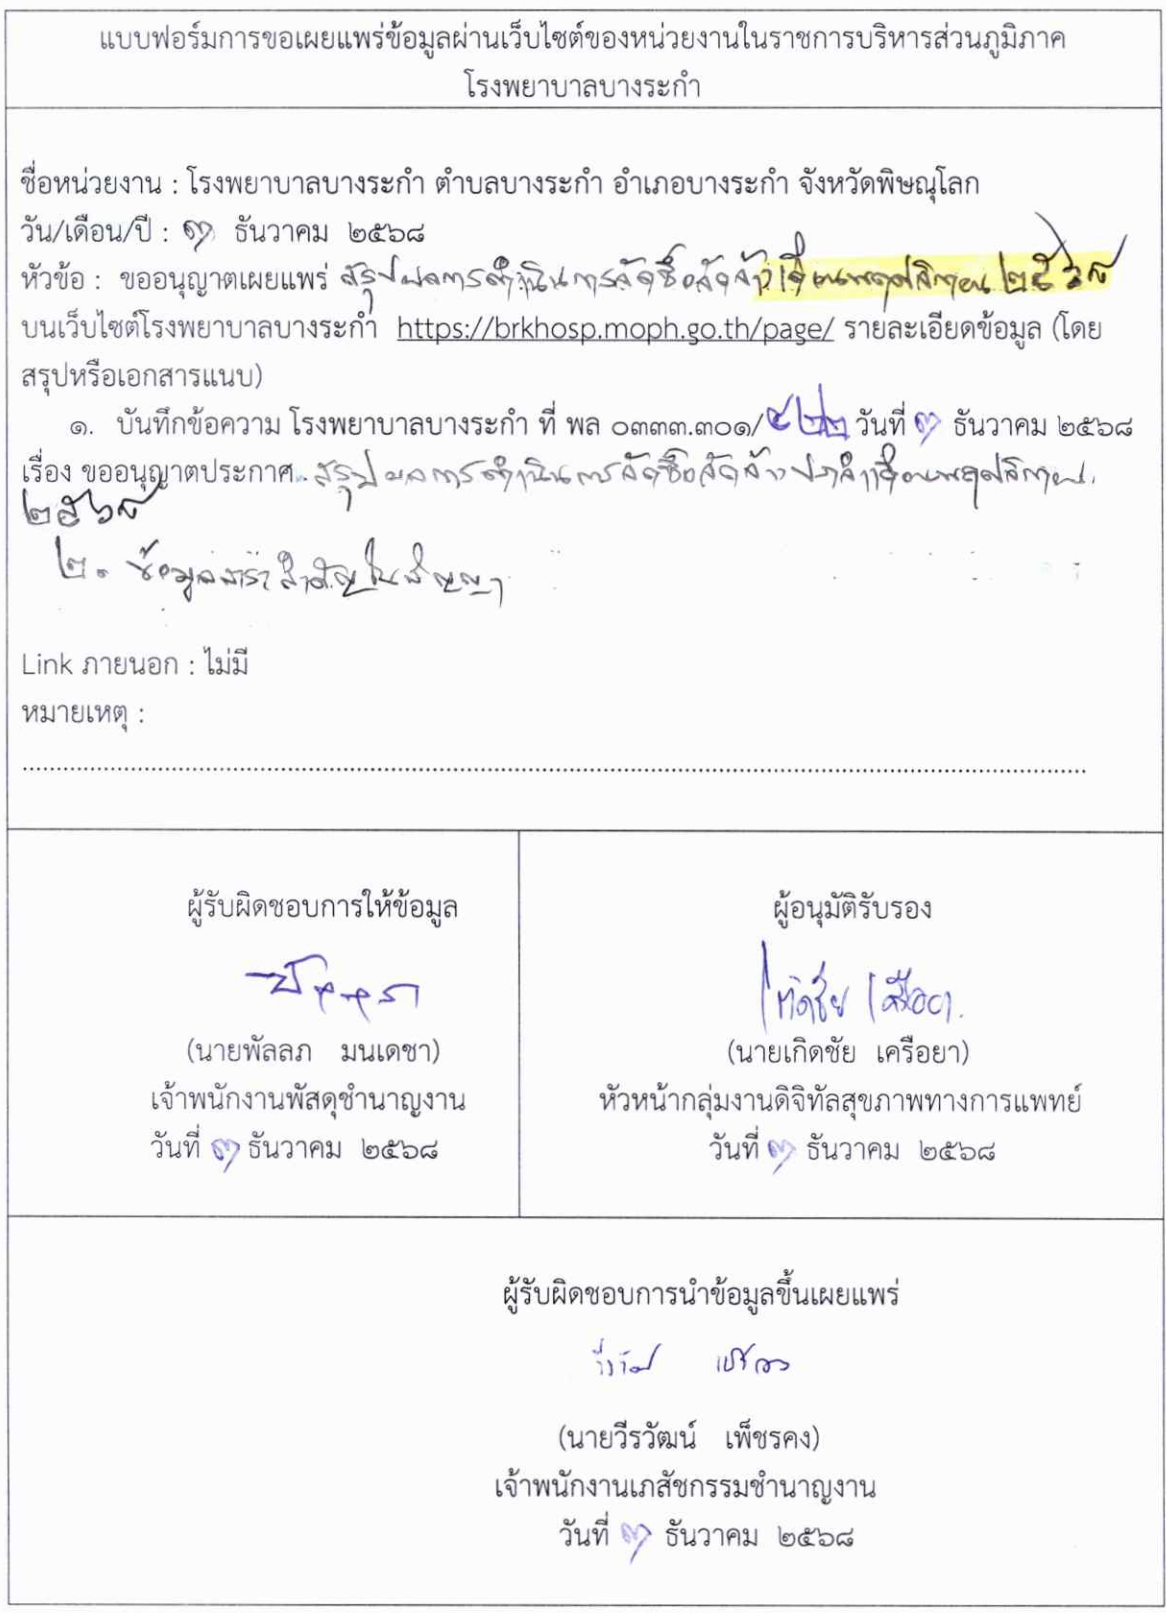 แบบฟอร์มการขอเผยแพร่ข้อมูลผ่านเว็บไซต์ของหน่วยงานในราชการบริหารส่วนภูมิภาค
โรงพยาบาลบางระกำ
ชื่อหน่วยงาน : โรงพยาบาลบางระกำ ตำบลบางระกำ อำเภอบางระกำ จังหวัดพิษณุโลก
วัน/เดือน/ปี : ๓ ธันวาคม ๒๕๖๘
หัวข้อ : ขออนุญาตเผยแพร่ สรุปผลการดำเนินการจัดซื้อจัดจ้างเดือนพฤศจิกายน ๒๕๖๘
บนเว็บไซต์โรงพยาบาลบางระกำ https://brkhosp.moph.go.th/page/ รายละเอียดข้อมูล (โดย
สรุปหรือเอกสารแนบ)
๑. บันทึกข้อความ โรงพยาบาลบางระกำ ที่ พล ๐๓๓๓.๓๐๑/๕๒๒ วันที่ ๓ ธันวาคม ๒๕๖๘
เรื่อง ขออนุญาตประกาศ สรุปผลการดำเนินการจัดซื้อจัดจ้างประจำเดือนพฤศจิกายน
๒๕๖๘
๒. ข้อมูลสาระสำคัญในสัญญา
Link ภายนอก : ไม่มี
หมายเหตุ :
ผู้รับผิดชอบการให้ข้อมูล
(นายพัลลภ มนเดชา)
เจ้าพนักงานพัสดุชำนาญงาน
วันที่ ๓ ธันวาคม ๒๕๖๘
ผู้อนุมัติรับรอง
เกิดชัย เครือยา
(นายเกิดชัย เครือยา)
หัวหน้ากลุ่มงานดิจิทัลสุขภาพทางการแพทย์
วันที่ ๓ ธันวาคม ๒๕๖๘
ผู้รับผิดชอบการนำข้อมูลขึ้นเผยแพร่
(นายวีรวัฒน์ เพ็ชรคง)
เจ้าพนักงานเภสัชกรรมชำนาญงาน
วันที่ ๓ ธันวาคม ๒๕๖๘